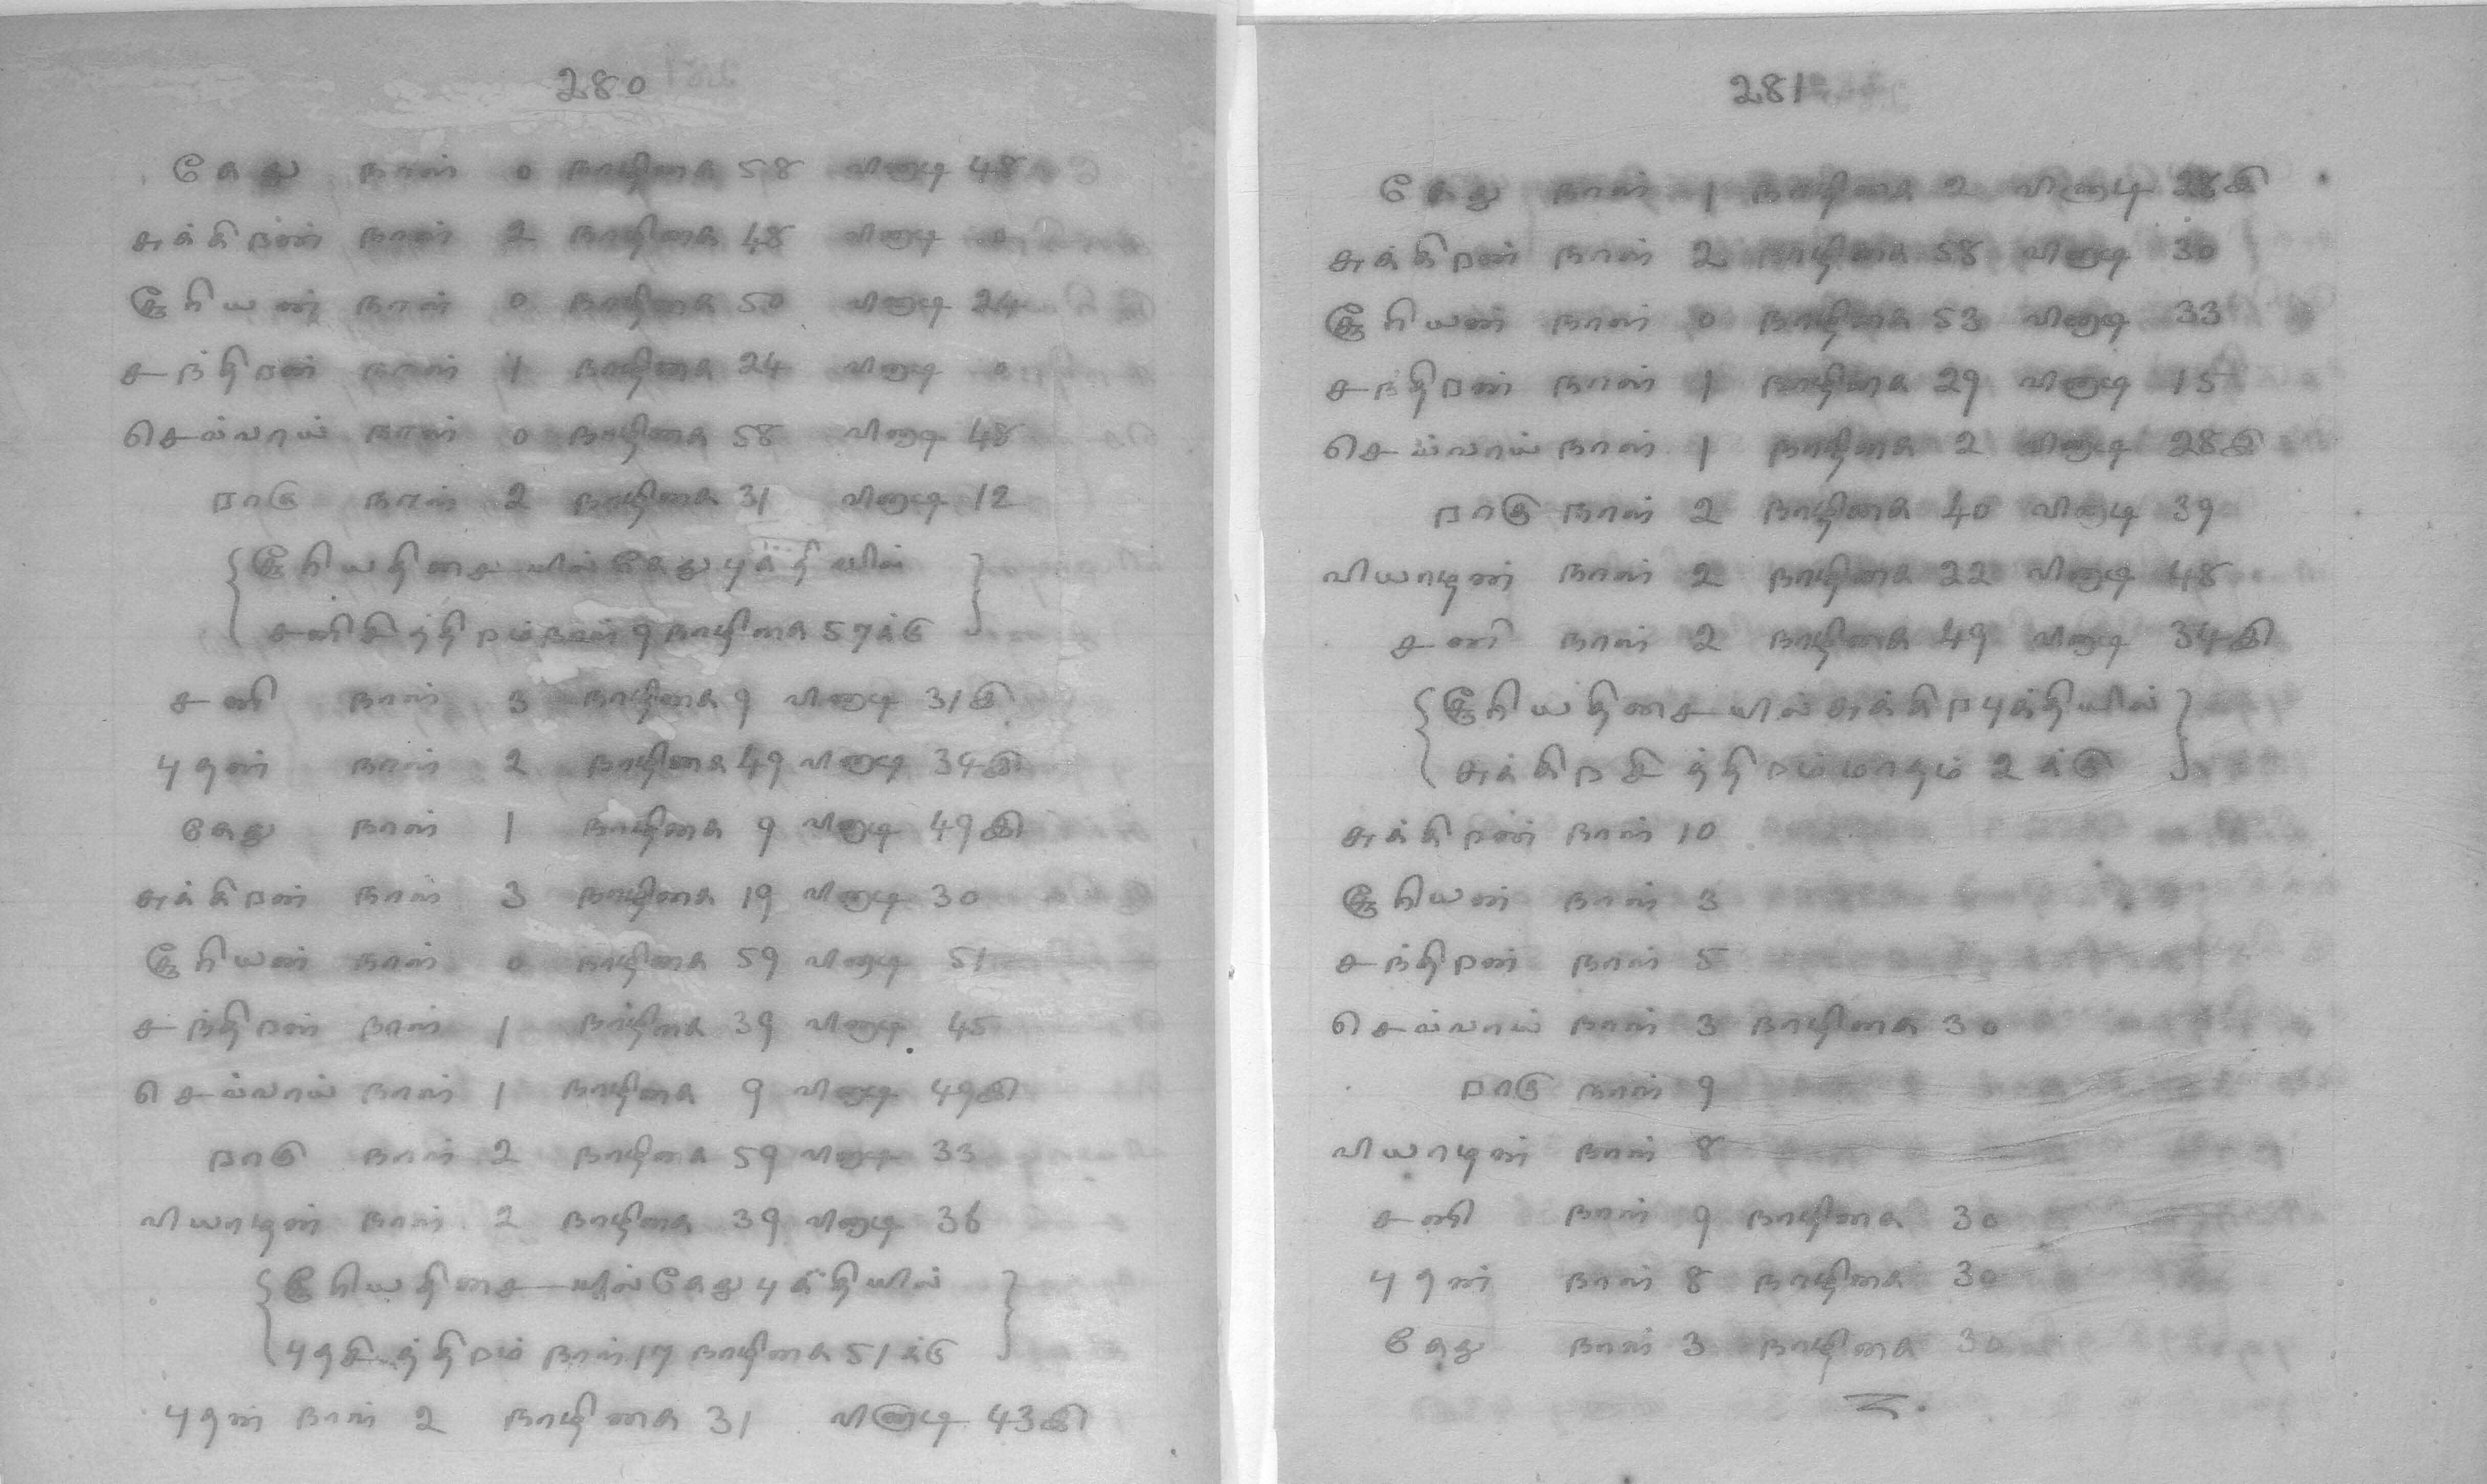 280
கேது நாள் 0 நாழிகை 58 விநாடி 48
சுக்கிரன் நாள் 2 நாழிகை 48 விநாடி 0
சூரியன் நாள் 0 நாழிகை 50 விநாடி 24
சந்திரன் நாள் 1 நாழிகை 24 விநாடி 0
செவ்வாய் நாள் 0 நாழிகை 58 விநாடி 48
ராகு நாள் 2 நாழிகை 31 விநாடி 12
{ சூரியதிசையில் கேதுபுக்தியில் }
{ சனிசித்திரம் நாள் 9 நாழிகை 57க்கு }
சனி நாள் 3 நாழிகை 9 விநாடி 31இ
புதன் நாள் 2 நாழிகை 49 விநாடி 34இ
கேது நாள் 1 நாழிகை 9 விநாடி 49இ
சுக்கிரன் நாள் 3 நாழிகை 19 விநாடி 30
சூரியன் நாள் 0 நாழிகை 59 விநாடி 51
சந்திரன் நாள் 1 நாழிகை 39 விநாடி 45
செவ்வாய் நாள் 1 நாழிகை 9 விநாடி 49இ
ராகு நாள் 2 நாழிகை 59 விநாடி 33
வியாழன் நாள் 2 நாழிகை 39 விநாடி 36
{ சூரியதிசையில் கேதுபுக்தியில் }
{ புதசித்திரம் நாள் 17 நாழிகை 51க்கு }
புதன் நாள் 2 நாழிகை 31 விநாடி 43இ
281
கேது நாள் 1 நாழிகை 2 விநாடி 28இ
சுக்கிரன் நாள் 2 நாழிகை 58 விநாடி 30
சூரியன் நாள் 0 நாழிகை 53 விநாடி 33
சந்திரன் நாள் 1 நாழிகை 29 விநாடி 15
செவ்வாய் நாள் 1 நாழிகை 2 விநாடி 28இ
ராகு நாள் 2 நாழிகை 40 விநாடி 39
வியாழன் நாள் 2 நாழிகை 22 விநாடி 48
சனி நாள் 2 நாழிகை 49 விநாடி 34இ
{ சூரியதிசையில் சுக்கிரபுக்தியில் }
{ சுக்கிரசித்திரம் மாதம் 2க்கு }
சுக்கிரன் நாள் 10
சூரியன் நாள் 3
சந்திரன் நாள் 5
செவ்வாய் நாள் 3 நாழிகை 30
ராகு நாள் 9
வியாழன் நாள் 8
சனி நாள் 9 நாழிகை 30
புதன் நாள் 8 நாழிகை 30
கேது நாள் 3 நாழிகை 30